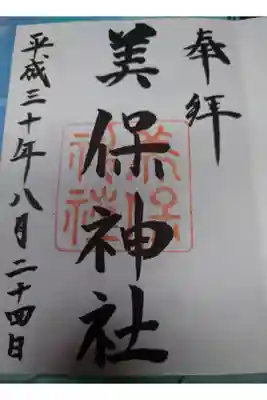 奉拝
美保神社
平成三十年八月二十四日
美保
神社